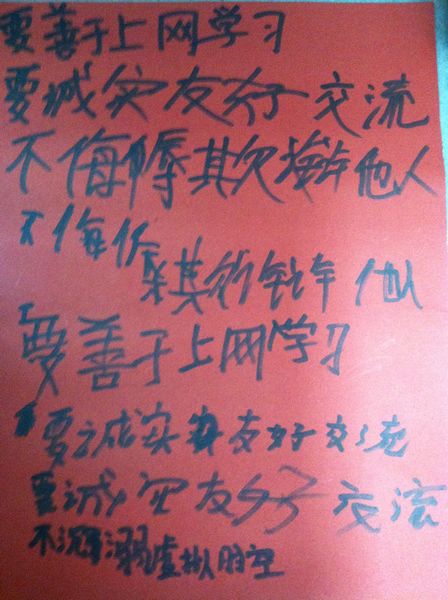 要善于上网学习
要诚实友好交流
不侮辱欺诈他人
不侮
要善于上网学习
要诚实友好交流
要诚实友好交流
不沉溺虚拟时空